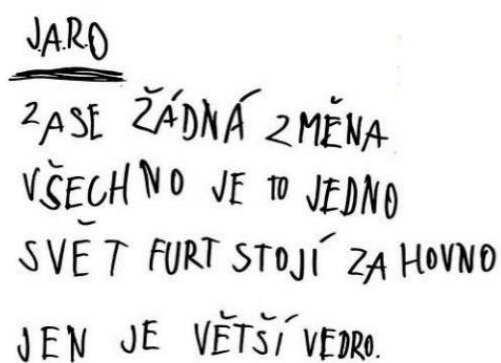 JARO
ZASE ŽÁDNÁ ZMĚNA
VŠECHNO JE TO JEDNO
SVĚT FURT STOJÍ ZA HOVNO
JEN JE VĚTŠÍ VEDRO.